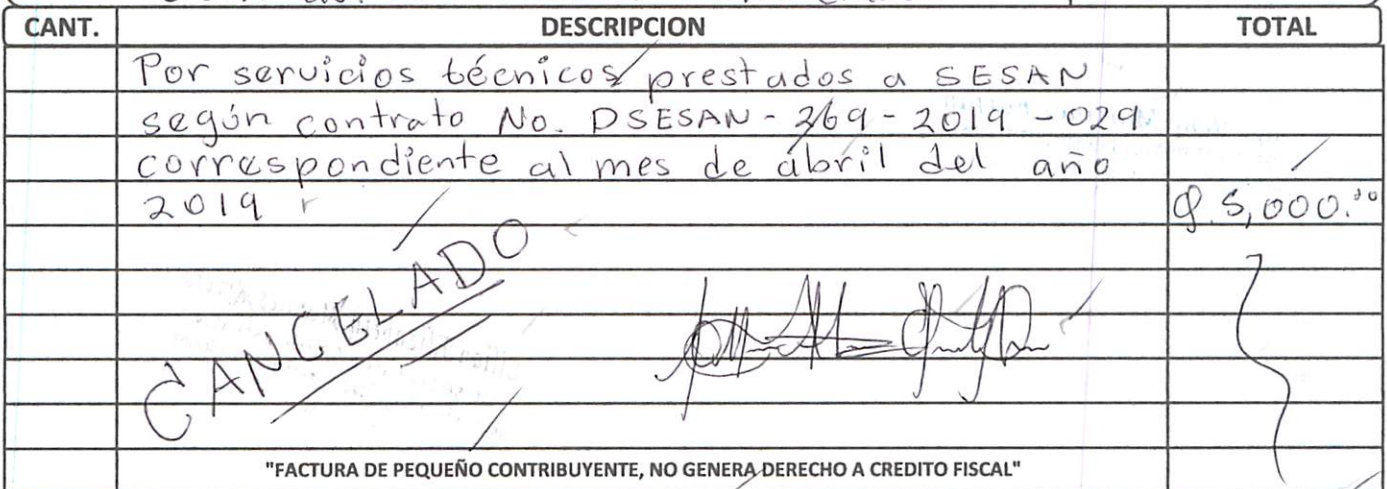 CANT. DESCRIPCION TOTAL
Por servicios técnicos prestados a SESAN
según contrato No. DSESAN - 269 - 2019 - 029
correspondiente al mes de ábril del año
2019 Q. 5,000.00
CANCELADO
"FACTURA DE PEQUEÑO CONTRIBUYENTE, NO GENERA DERECHO A CREDITO FISCAL"